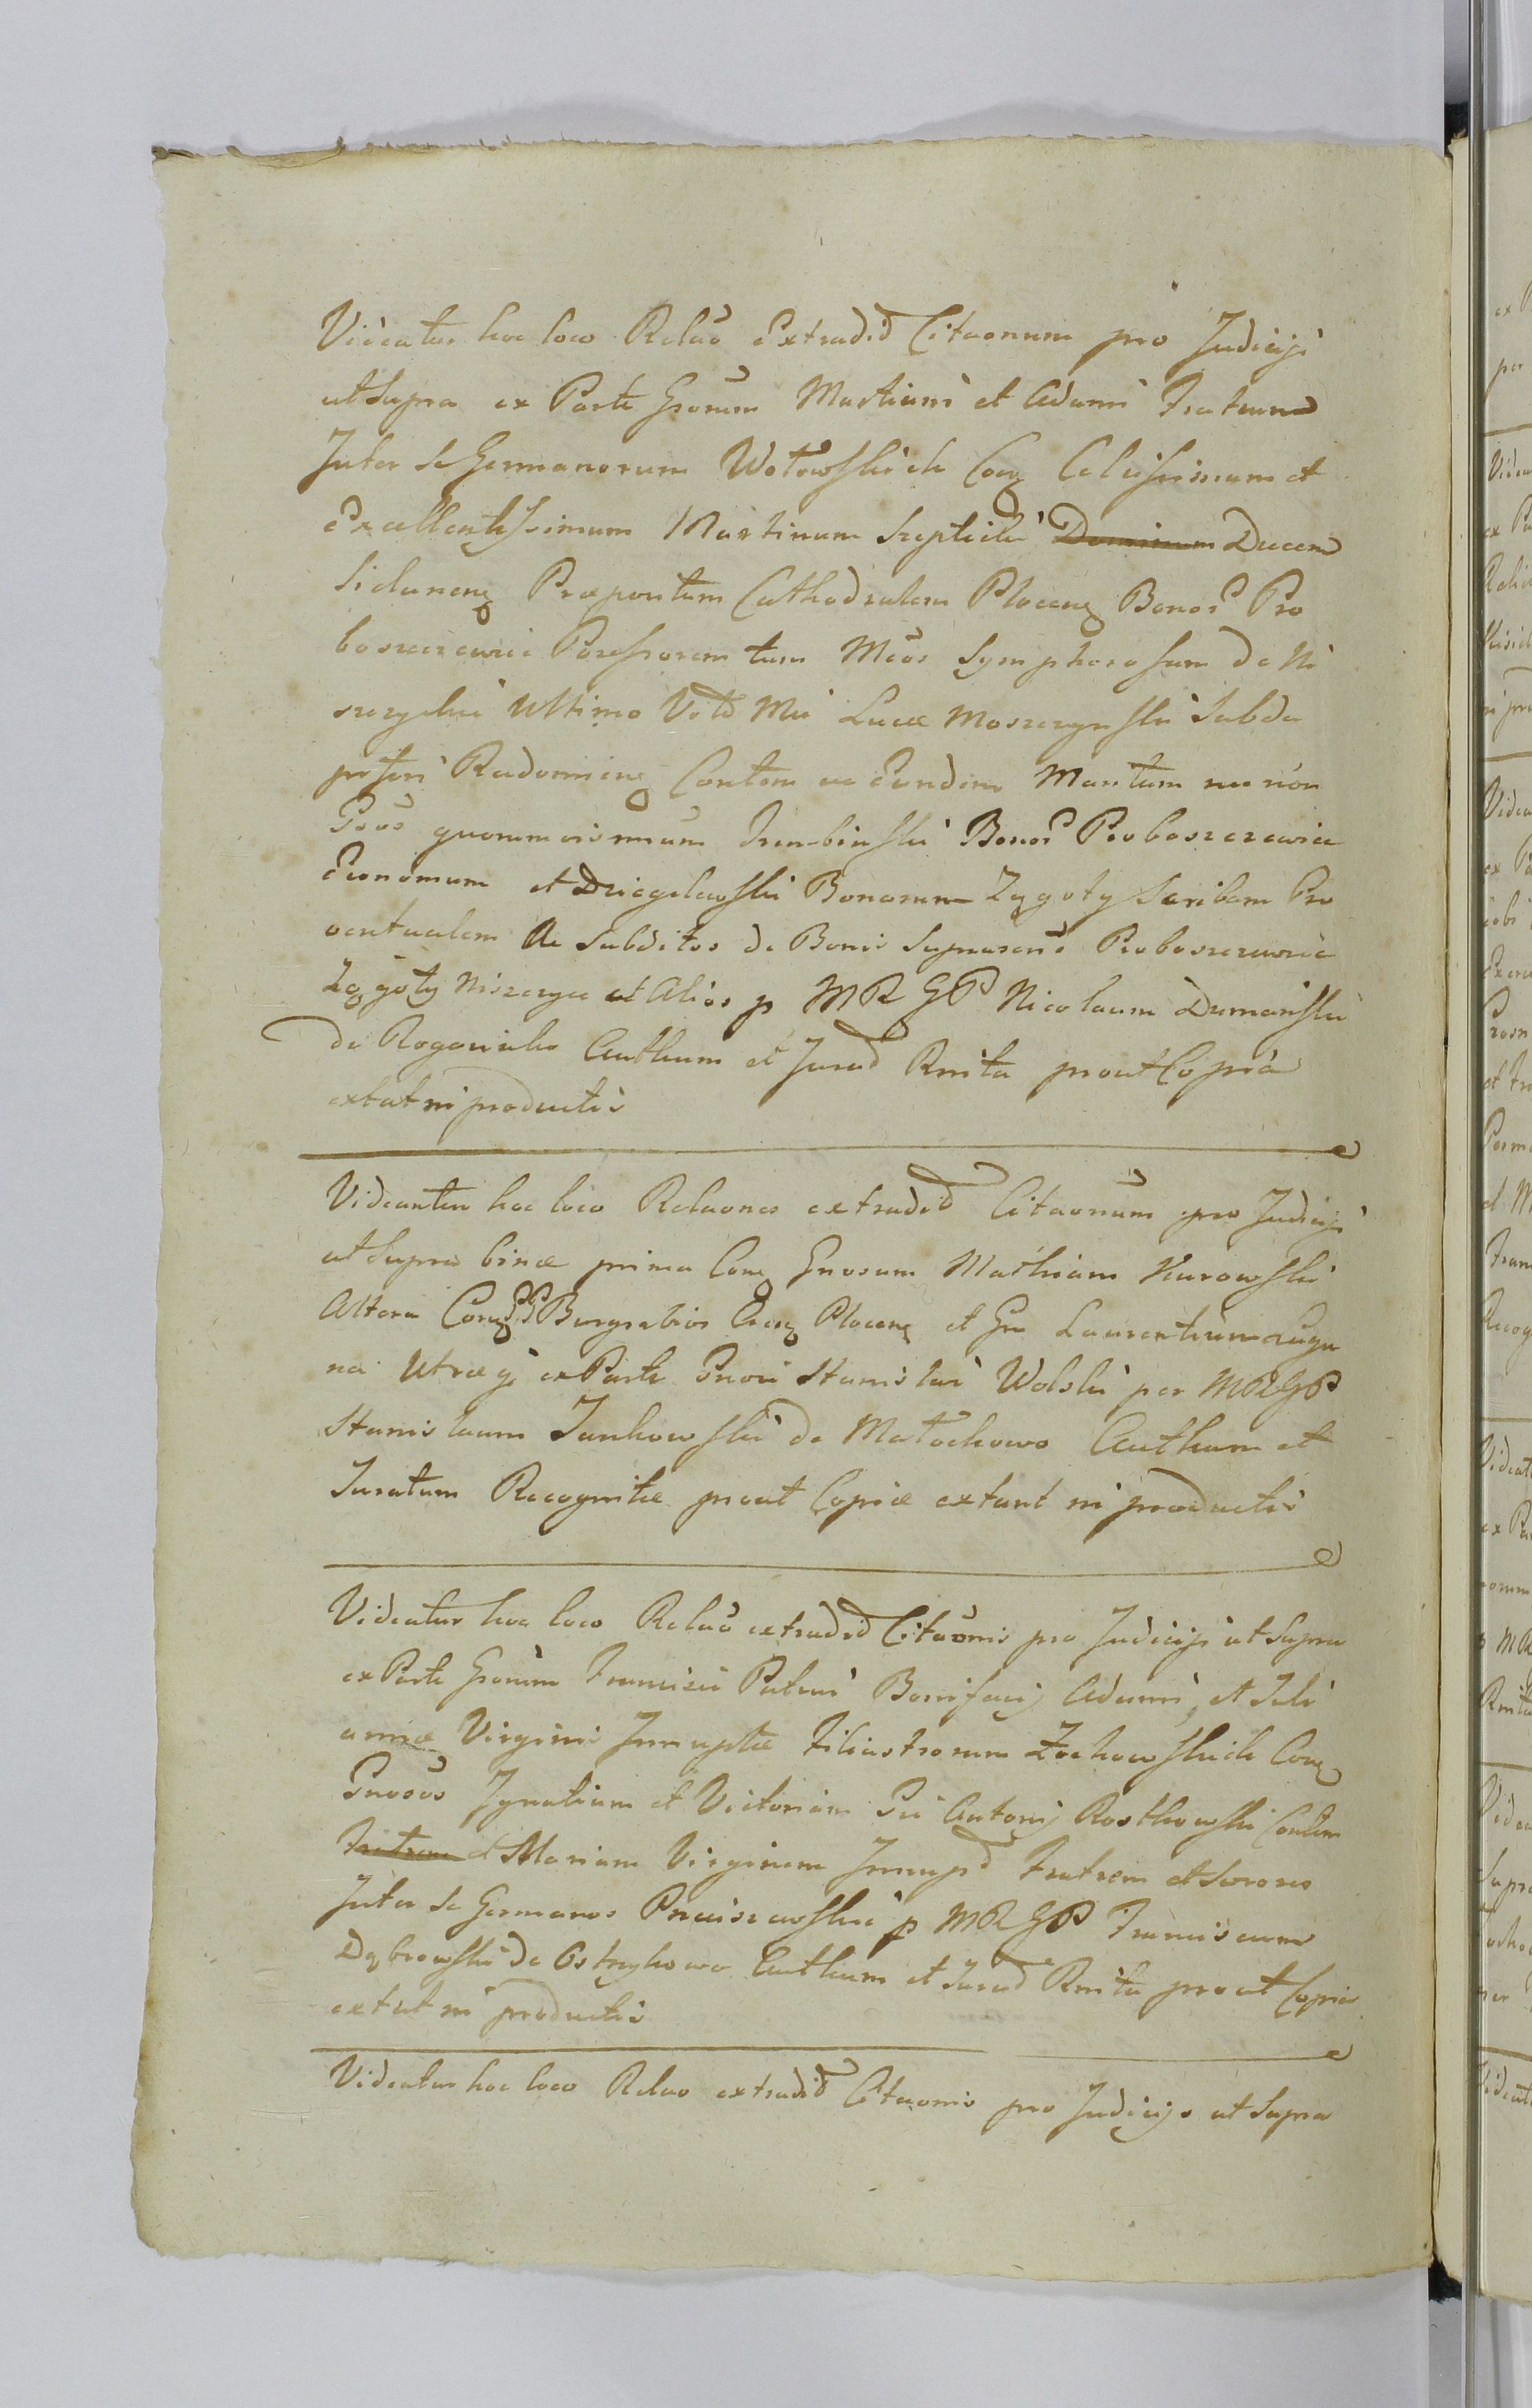 Videatur hoc loco Relaõ extradid Citaonum pro Judicijs
ut Supra ex Parte Gsorum Martiani et Adami Fratrum
Inter se Germanorum Wotowskich Coq Celsissimum et
Excellentissimum Martinum Szeptycki Dominum Ducem
Sieluneng Præpositum Cathedralem Ploceng Bonor Pro
boszczewice Possessorem tum Mcos Symphorosam de Ni
szczyckie Ultimo Voto Mci Lucæ Moszczynski Subda
piferi Radomieng Contem ac Eundem Maritum nec non
Gsos quorumvis nnum Trembinski Bonor Proboszczewice
Economum et Dziegelewski Bonorum Zągoty Scribam Pro
ventualem Ac Subditos de Bonis Suprascris Proboszczewice
Zągoty Niszczyce et Alios p MR GP Nicolaum Dumanski
de Rogowieko Authum et Jurad Rnita prout Copia
extat in productis
Videantur hoc loco Relaones extradid Citaonum pro Judicijs
ut Supra binæ prima Conq Gnosum Mathiam Kurowski
Altera Conq GG Burgrabios Ceseq Ploceng et Gsu Laurentium Lugu
na Utræq ex Parte Gnosi Stanislai Wolski per MRGP
Stanislaum Jankowski de Małochowo Authum et
Juratum Recognitæ prout Copiæ extant in productis
Videatur hoc loco Relaõ extradid Citaõnis pro Judicijs ut Supra
ex Parte Gsorum Francisci Patrui Bonifacij Adami, et Juli
annæ Virginis Innuptæ Filiastrorum Żochowskich Conq
Gnosos Ignatium et Victoriam Gsi Antonij Rostkowski Contem
Fratrem et Mariam Virginem Innupd Fratrem et Sorores
Inter se Germanos Pniewski p MR GP Franciscum
Dąbrowski de Ostrzykowo Authum et Jurad Rnita prout Copia
extat in productis
Videatur hoc loco Relao extradid Citaonis pro Judicijs ut Supra